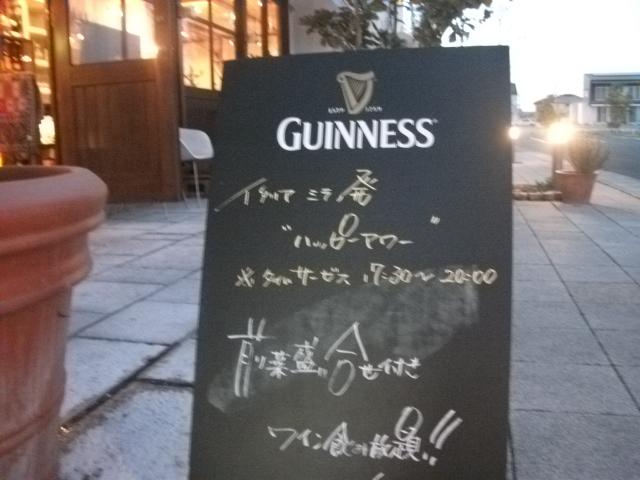 GUINNESS
イタリア ミラノ発
"ハッピーアワー"
※タイムサービス 17:30〜20:00
前菜盛り合せ付き
ワイン飲み放題!!